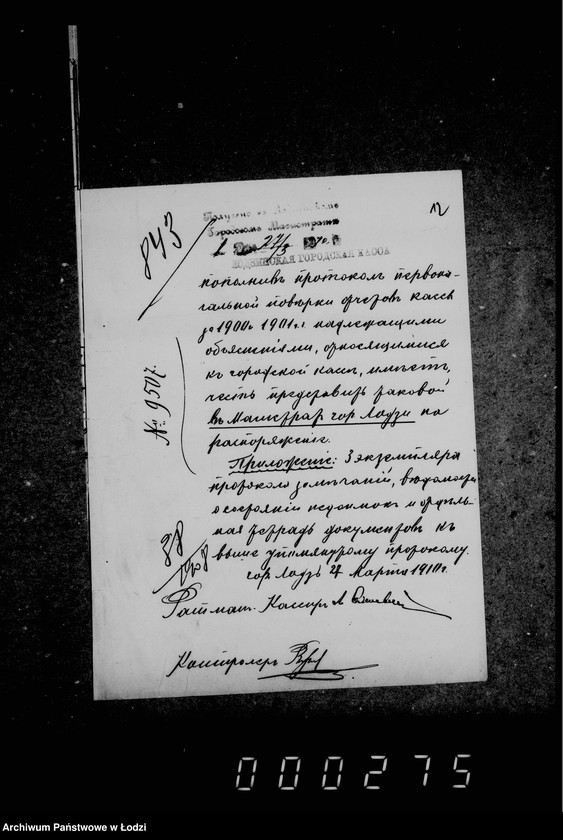 12
843
Получено в Лодзинском
Городском Магистрате
27/3
ЛОДЗИНСКАЯ ГОРОДСКАЯ КАССА
пополнивъ протоколъ первона-
чальной повѣрки отчетовъ кассы
за 1900 и 1901 г.г. надлежащими
объясненіями, относящимися
къ городской кассѣ, имѣетъ
честь представить таковой
въ Магистратъ гор. Лодзи на
распоряженіе.
№ 9507.
Приложеніе: 3 экземпляра
протокола замѣчаній, вѣдомость
о состояніи недоимокъ и отдѣль-
ная тетрадь документовъ къ
выше упомянутому протоколу.
гор. Лодзь 27 Марта 1910 г.
Ратманъ-Кассиръ
Контролеръ
000275
Archiwum Państwowe w Łodzi